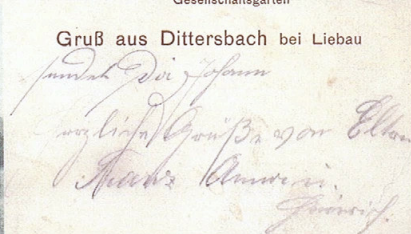 Gesellschaftsgarten
Gruß aus Dittersbach bei Liebau
sendet Dir Johann
herzliche Grüße von Eltern
Heinrich.